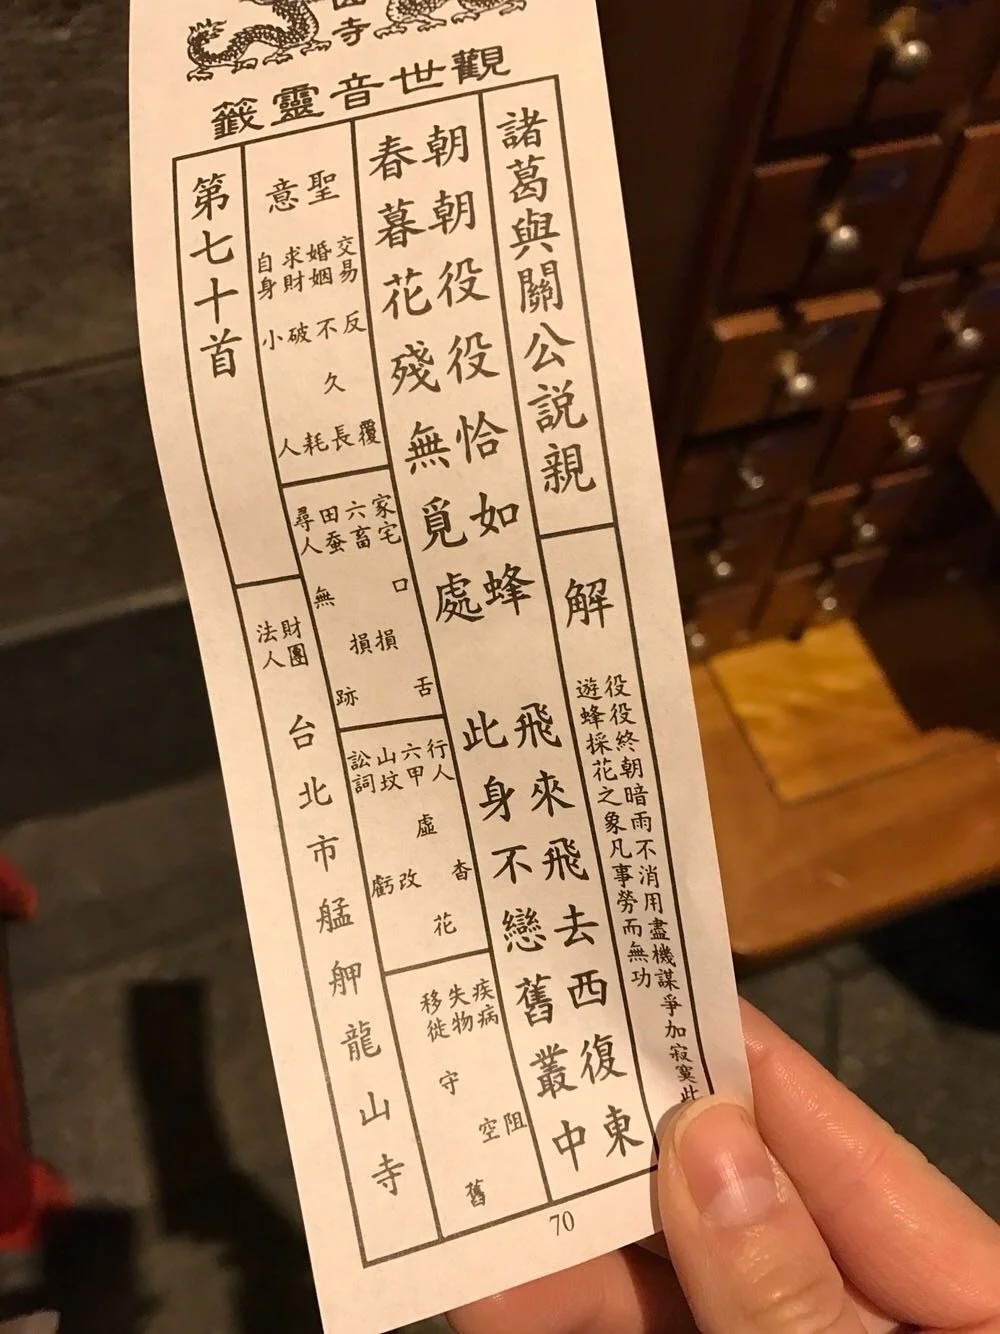 寺
觀世音靈籤
諸葛與關公説親
解
役役終朝暗雨不消用盡機謀爭加寂寞此
遊蜂採花之象凡事勞而無功
朝朝役役恰如蜂 飛來飛去西復東
春暮花殘無覓處 此身不戀舊叢中
聖意
交易 反覆
婚姻 不久長
求財 破耗
自身 小人
家宅 口舌
六畜 損
田蚕 損
尋人 無跡
行人 杳
六甲 虛花
山坟 改
訟詞 虧
疾病 阻
失物 空
移徙 守舊
第七十首
財團法人 台北市艋舺龍山寺
70